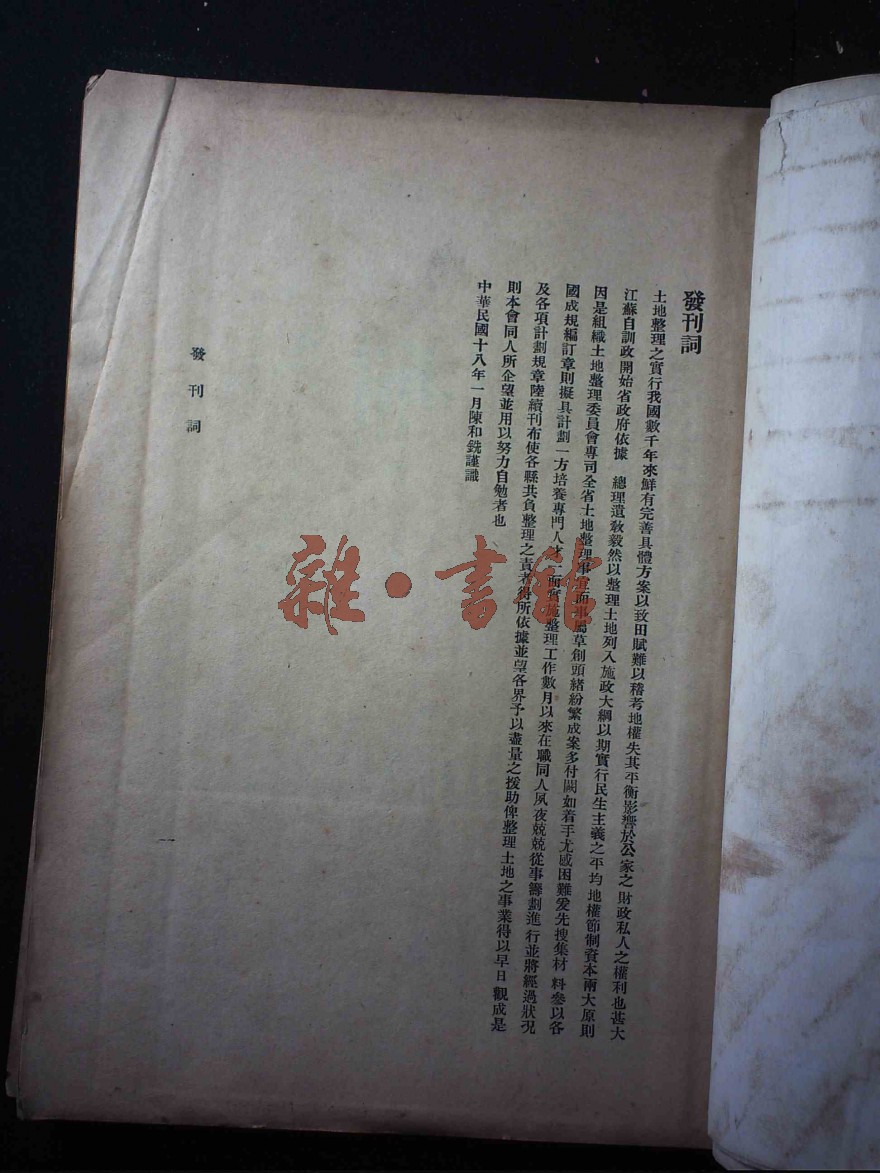 發刊詞
土地整理之實行我國數千年來鮮有完善具體方案以致田賦難以稽考地權失其平衡影響於公家之財政私人之權利也甚大
江蘇自訓政開始省政府依據　總理遺敎毅然以整理土地列入施政大綱以期實行民生主義之平均地權節制資本兩大原則
因是組織土地整理委員會專司全省土地整理事宜而事屬草創頭緒紛繁成案多付闕如着手尤感困難爰先搜集材料參以各
國成規編訂章則擬具計劃一方培養專門人才一面實施整理工作數月以來在職同人夙夜兢兢從事籌劃進行並將經過狀況
及各項計劃規章陸續刊布使各縣共負整理之責者得所依據並望各界予以盡量之援助俾整理土地之事業得以早日觀成是
則本會同人所企望並用以努力自勉者也
中華民國十八年一月陳和銑謹識
發刊詞
一
雜·書館